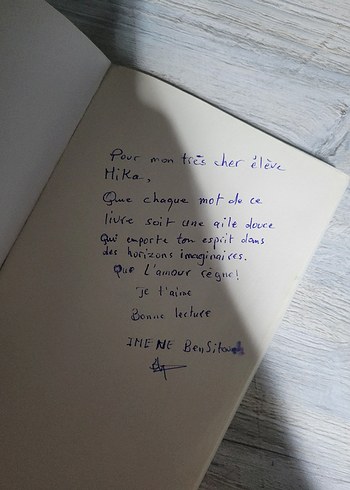 Pour mon très cher élève
Mika,
Que chaque mot de ce
livre soit une aile douce
qui emporte ton esprit dans
des horizons imaginaires.
Que L'amour règne!
Je t'aime
Bonne lecture
IMENE